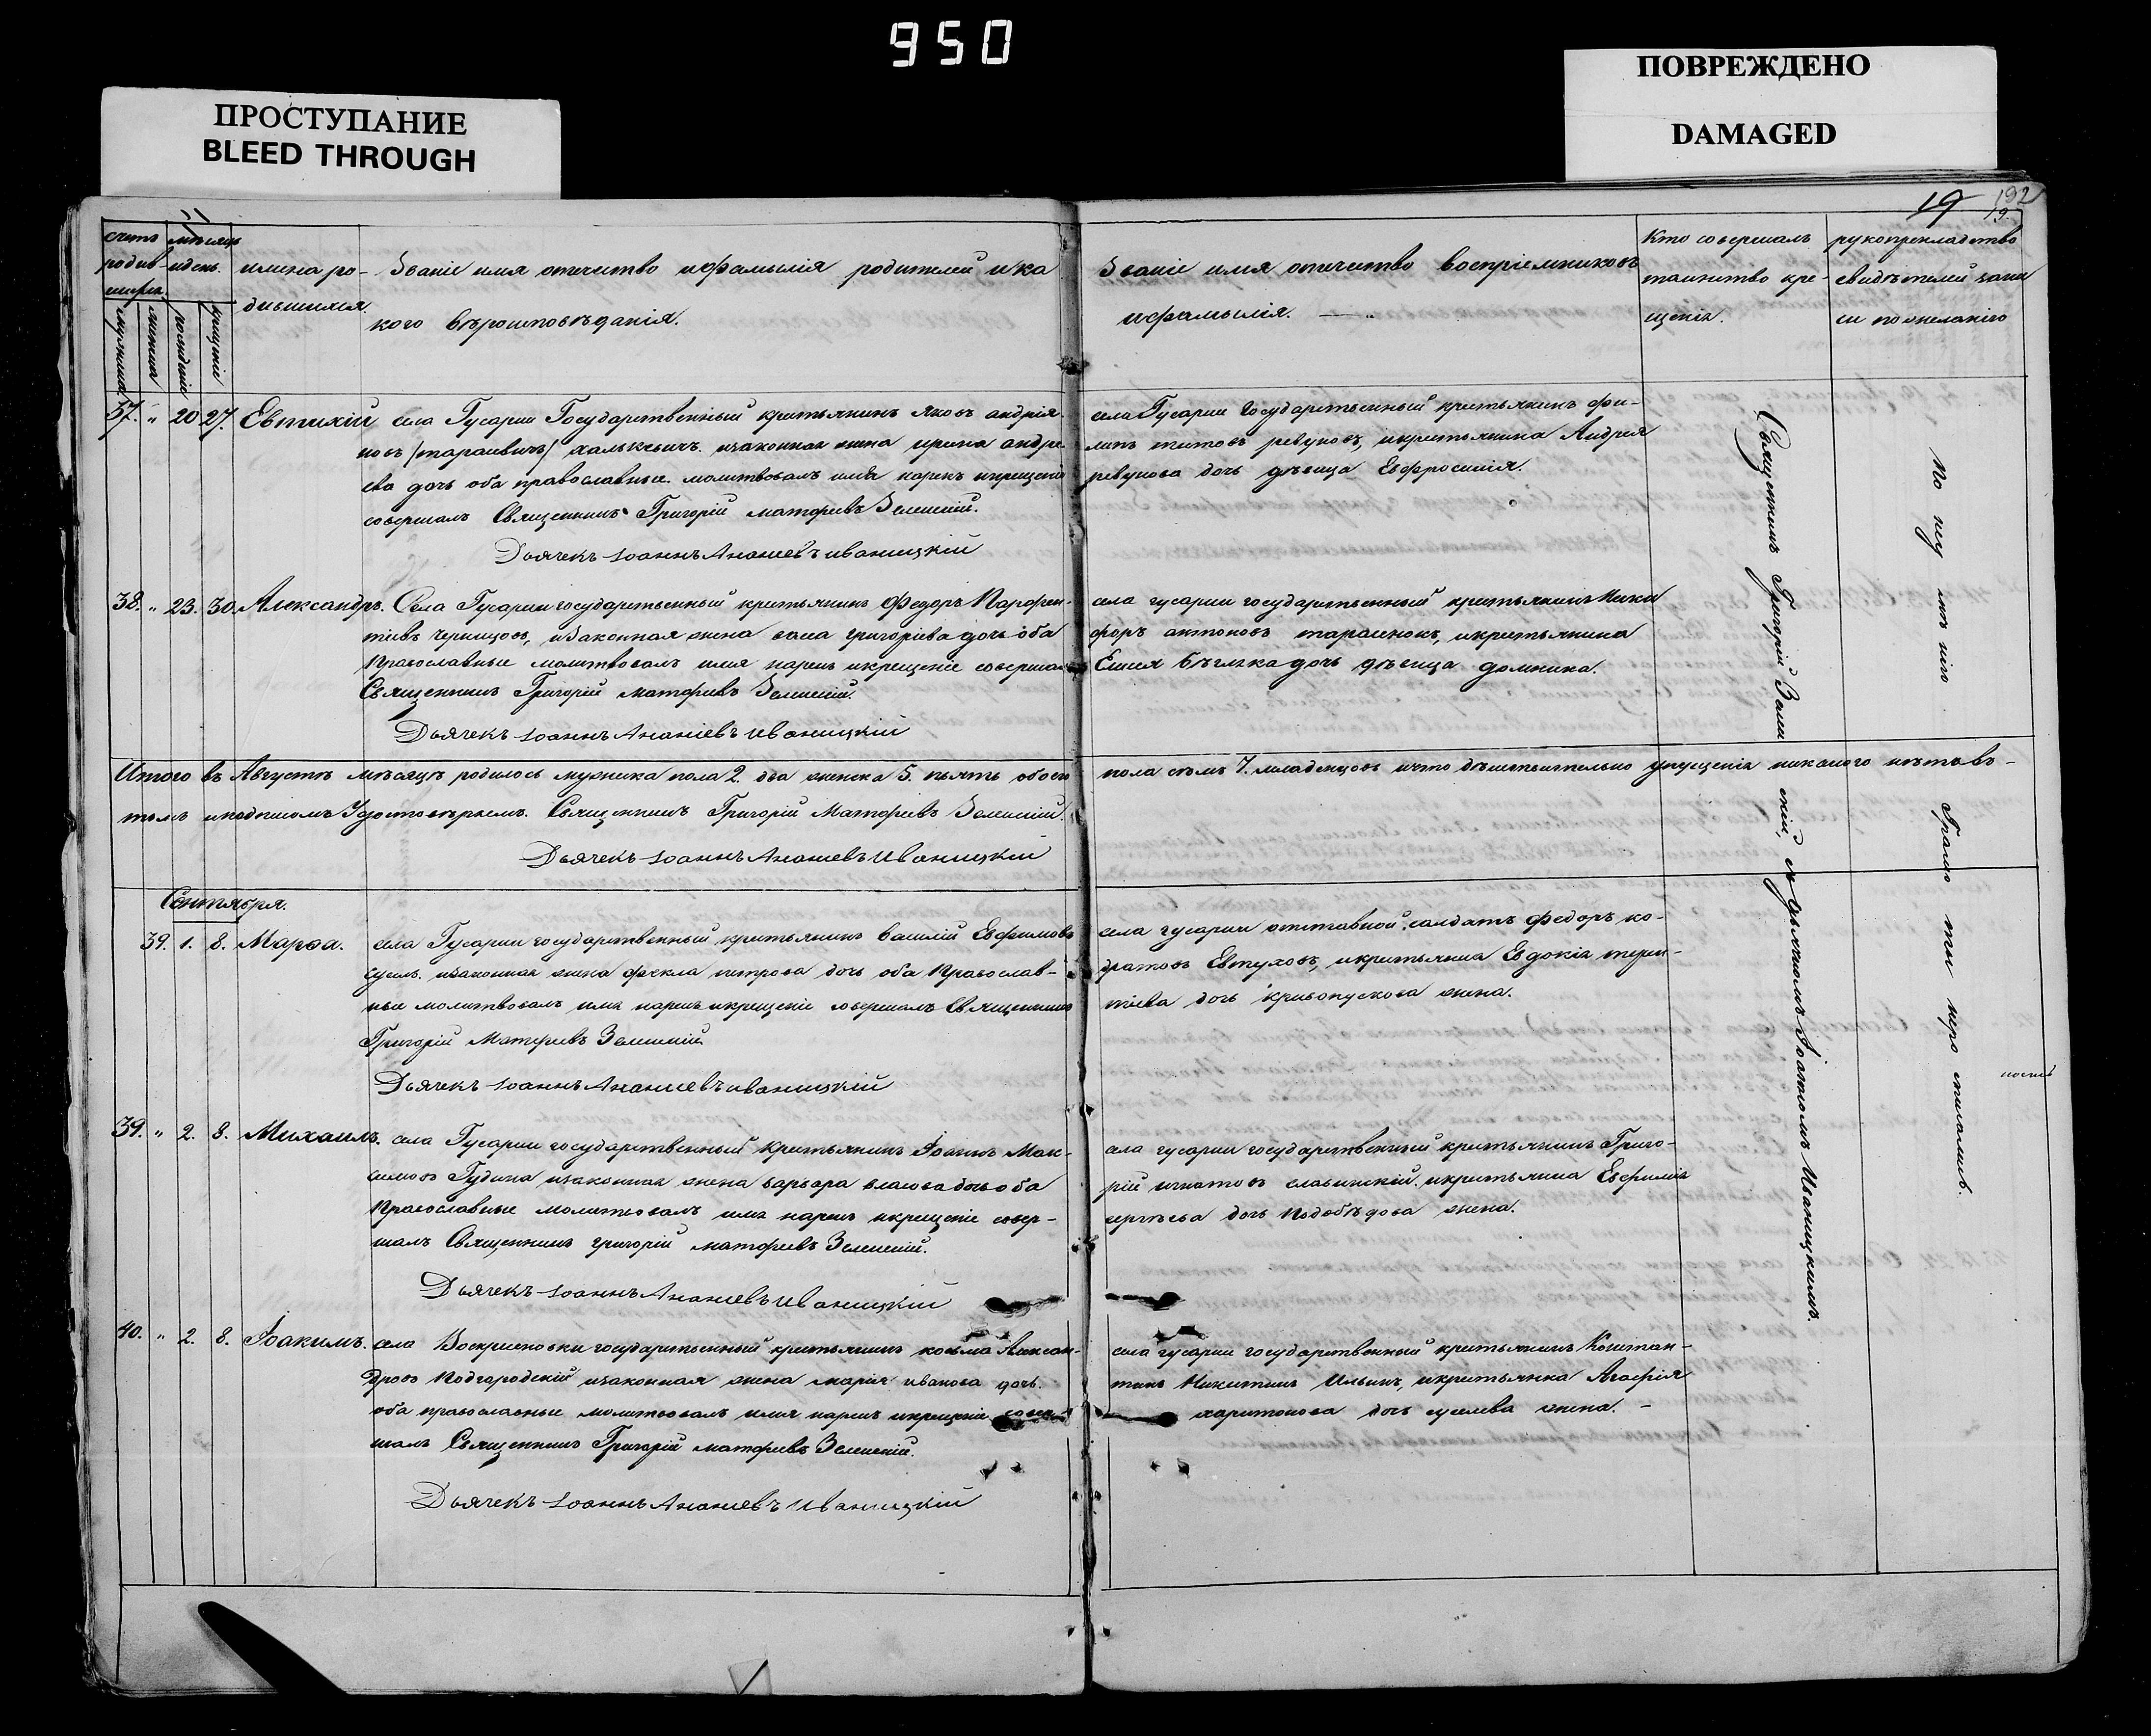 950
ПРОСТУПАНИЕ
BLEED THROUGH
ПОВРЕЖДЕНО
DAMAGED
19
192
19
счетъ родив-шихся
мѣсяцъ и день
мужска
женска
рожденіе
крещеніе
имена ро-
дившихся
Званіе имя отечество и фамылія родителей и ка
кого вѣроисповѣданія.
Званіе имя отечество воспріемниковъ
и фамылія.
Кто совершалъ
таинство кре-
щенія.
рукоприкладство
свидѣтелей запи
си по желанію
37. " 20 27. Евтихій
села Гусарки Государственный крестьянинъ яковъ андрія
новъ (тарасевичъ) халькевичъ и законная жена ирина андре
ева дочь оба православные. молитвовалъ имя нарекъ и крещеніе
совершалъ Священникъ Григорій матфіевъ Зеленскій.
Дьячекъ Іоаннъ Ананіевъ иваницкій
села Гусарки государственный крестьянинъ фи-
липъ титовъ ревуновъ, и крестьянина Андрея
ревунова дочь дѣвица Евфросинія.
38. " 23. 30. Александръ.
Села Гусарки государственный крестьянинъ Федоръ Парфен-
тіевъ Черницовъ, и Законная жена григоріева дочь оба
Православные молитвовалъ имя нарекъ и крещеніе совершалъ
Священникъ Григорій матфіевъ Зеленскій.
Дьячекъ Іоаннъ Ананіевъ Иваницкій
села гусарки государственный крестьянинъ Ники
форъ антоновъ тарасенокъ, и крестьянина
дочь дѣвица домника.
Итого въ Августѣ мѣсяцѣ родилось мужеска пола 2. два женска 5. пьять обоего
пола семь 7. младенцовъ и что дѣйствительно упущенія никакого нѣтъ въ-
томъ и подписомъ Удостовѣряемъ. Священникъ Григорій Матфіевъ Зеленскій.
Дьячекъ Іоаннъ Ананіевъ Иваницкій
Сентября.
39. 1. 8. Марфа.
села Гусарки государственный крестьянинъ василій Евфимовъ
и законная жена фекла петрова дочь оба Православ-
ные молитвовалъ имя нарекъ и крещеніе совершалъ Священникъ
Григорій Матфіевъ Зеленскій
Дьячекъ Іоаннъ Ананіевъ иваницкій
села гусарки отставной солдатъ федоръ ко-
дратовъ Евтуховъ, и крестьянка Евдокія терен-
тіева дочь кривопускова жена.
39. " 2. 8. Михаилъ.
села Гусарки государственный Крестьянинъ Іоаннъ Мак-
симовъ Гудина и законная жена варвара власова дочь оба
Православные молитвовалъ имя нарекъ и крещеніе совер-
шалъ Священникъ григорій матфіевъ Зеленскій.
Дьячекъ Іоаннъ Ананіевъ Иваницкій
села гусарки государственный крестьянинъ Григо-
рій игнатовъ славинскій. и крестьянка Евфимія
сергѣева дочь Подобѣдова жена.
40. " 2. 8. Іоакимъ.
села Воскрисеновки государственный крестьянинъ козьма Алексан-
дровъ Подгородскій и законная жена марія иванова дочь.
оба православные молитвовалъ имя нарекъ и крещеніе совер
шалъ Священникъ Григорій матфіевъ Зеленскій.
Дьячекъ Іоаннъ Ананіевъ Иваницкій
села гусарки государственный крестьянинъ Констан-
тинъ Никитинъ Ильинъ, и крестьянка Агафія
харитонова дочь жена. -
Священникъ Григорій Зеленскій, съ дьячкомъ Іоанномъ Иваницкимъ.